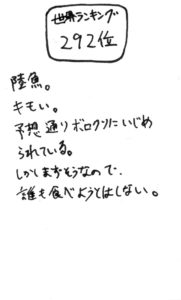 世界ランキング
292位
陸魚。
キモい。
予想通りボロクソにいじめ
られている。
しかしまずそうなので、
誰も食べようとはしない。